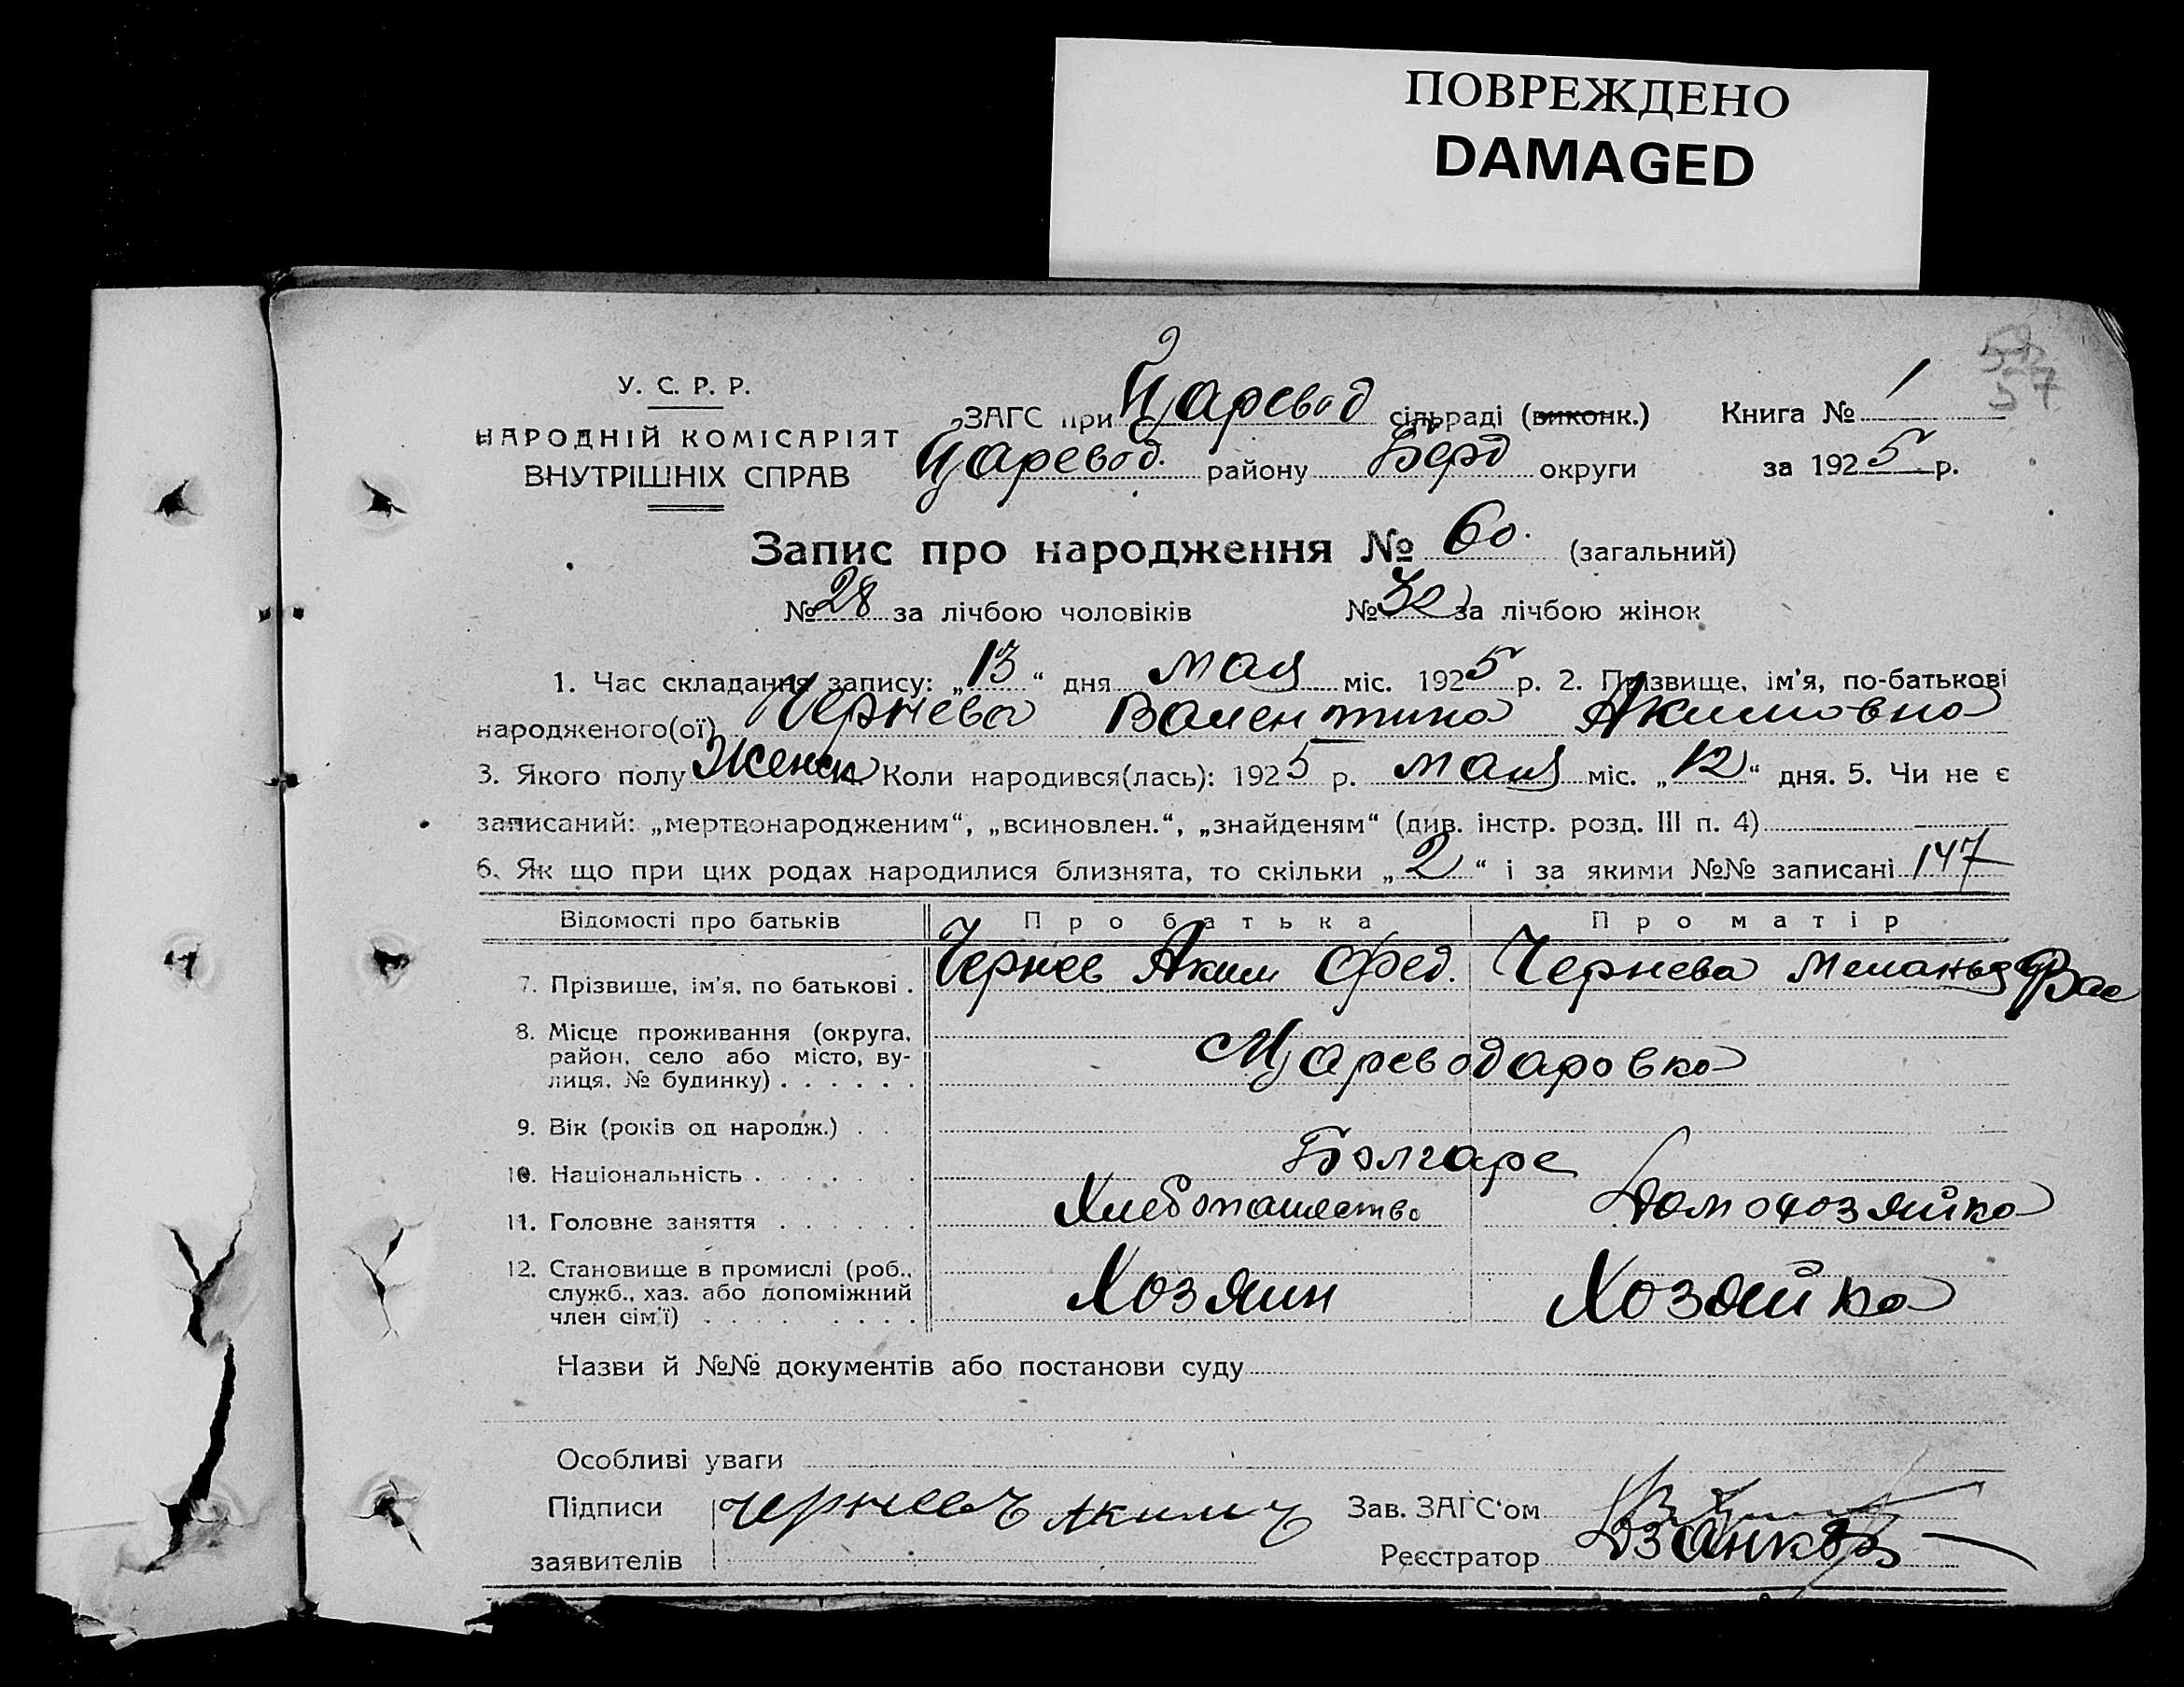 ПОВРЕЖДЕНО
DAMAGED
57
У. С. Р. Р.
НАРОДНІЙ КОМІСАРІЯТ
ВНУТРІШНІХ СПРАВ
ЗАГС при Царевод сільраді (виконк.) Книга № 1
Царевод. району Берд округи за 1925 р.
Запис про народження № 60. (загальний)
№ 28 за лічбою чоловіків № 32 за лічбою жінок
1. Час складання запису: „13“ дня мая міс. 1925 р. 2. Прізвище, ім'я, по-батькові
народженого(ої) Чернева Валентина Акимовна
3. Якого полу Женск Коли народився(лась): 1925 р. мая міс. „12“ дня. 5. Чи не є
записаний: „мертвонародженим“, „всиновлен.“, „знайденям“ (див. інстр. розд. III п. 4)
6. Як що при цих родах народилися близнята, то скільки „2“ і за якими №№ записані 147
Відомості про батьків Про батька Про матір
7. Прізвище, ім'я, по батькові . Чернев Аким Фед. Чернева Меланья Вас
8. Місце проживання (округа,
район, село або місто, ву-
лиця, № будинку) . . . . . . Цареводаровка
9. Вік (років од народж.) . . .
10. Національність . . . . . . . Болгаре
11. Головне заняття . . . . . . Хлебопашество Домохозяйка
12. Становище в промислі (роб.,
служб., хаз. або допоміжний
член сім'ї) . . . . . . . . . Хозяин Хозяйка
Назви й №№ документів або постанови суду
Особливі уваги
Підписи Черневъ Акимъ Зав. ЗАГС'ом
заявителів Реєстратор Дзанков